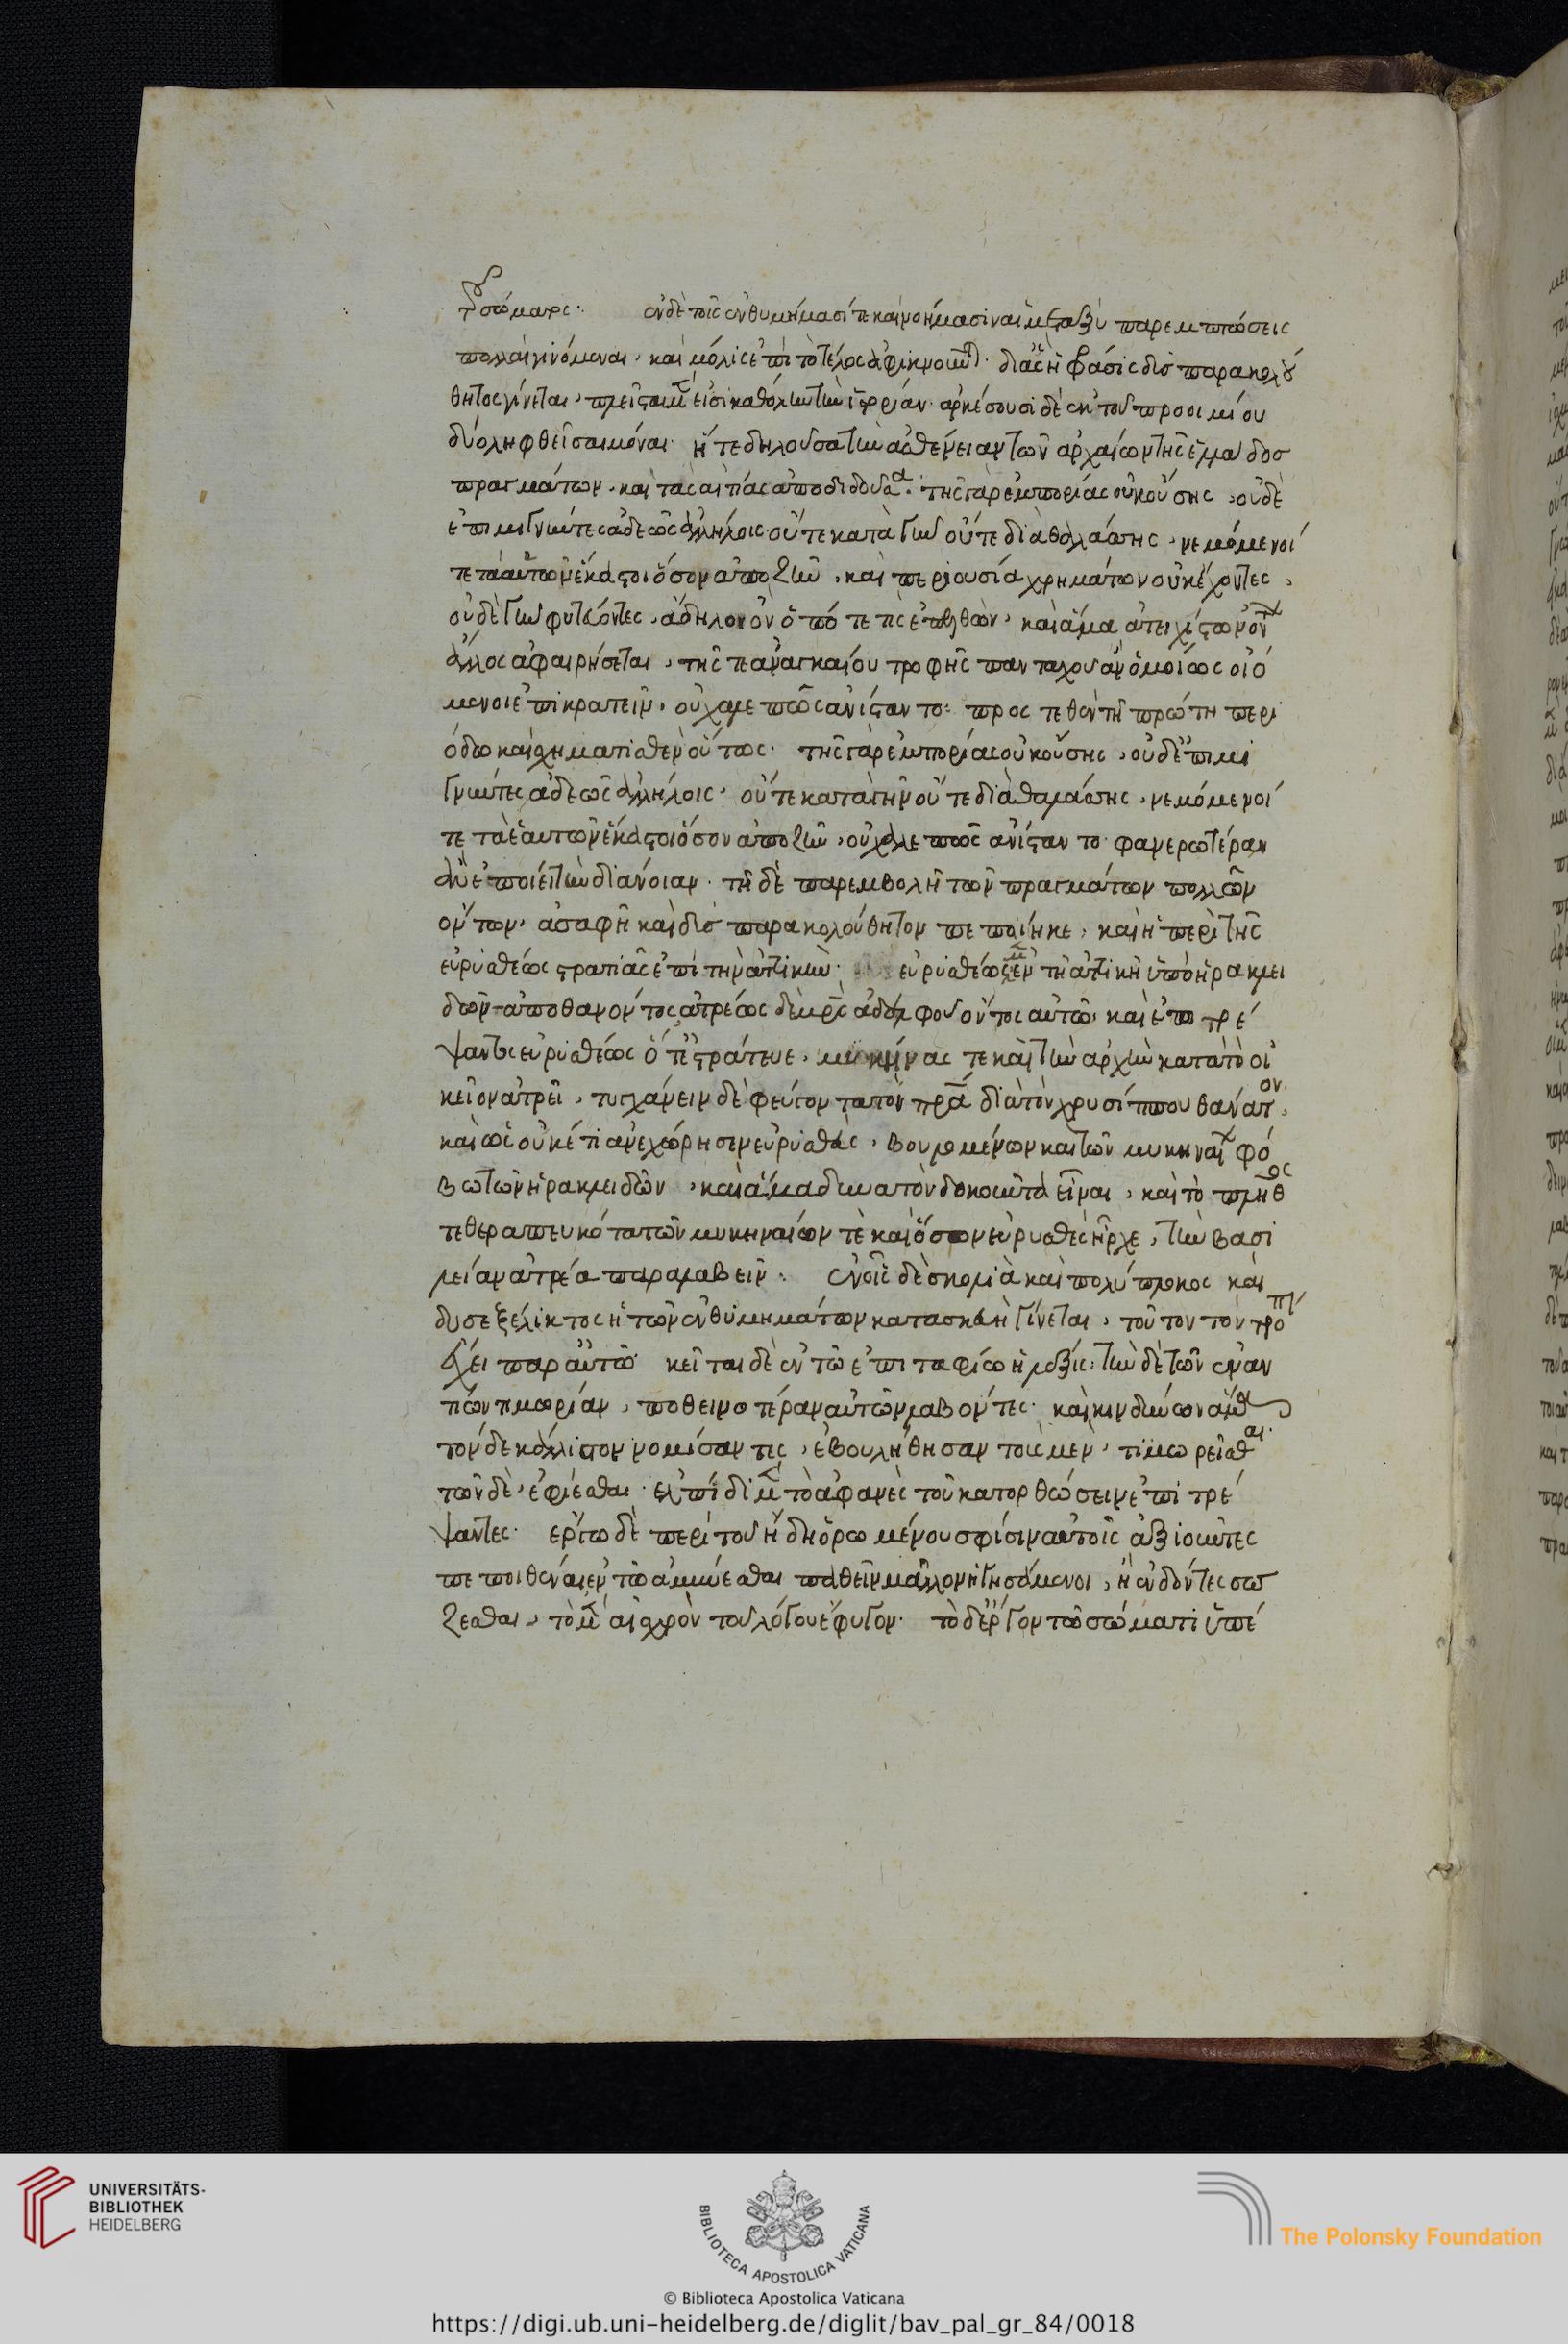 τοῦ σώματος· ἐν δὲ τοῖς ἐνθυμήμασί τε καὶ νοήμασιν αἱ μεταξὺ παρεμπτώσεις
πολλαὶ γινόμεναι, καὶ μόλις ἐπὶ τὸ τέλος ἀφικνούμεναι· δι' ἃς ἡ φράσις δυσπαρακολού
θητος γίνεται, πλεῖσται μέν εἰσι καθόλην τὴν ἱστορίαν· ἀρκέσουσι δὲ ἐκ τοῦ προοιμίου
δύο ληφθεῖσαι μόναι· ἥ τε δηλοῦσα τὴν ἀσθένειαν τῶν ἀρχαίων τῆς ἑλλάδος
πραγμάτων, καὶ τὰς αἰτίας ἀποδιδοῦσα· τῆς γὰρ ἐμπορίας οὐκ οὔσης, οὐδὲ
ἐπιμιγνύντες ἀδεῶς ἀλλήλοις οὔτε κατὰ γῆν οὔτε διὰ θαλάσσης, νεμόμενοί
τε τὰ αὑτῶν ἕκαστοι ὅσον ἀποζῆν, καὶ περιουσία χρημάτων οὐκ ἔχοντες,
οὐδὲ γῆν φυτεύοντες, ἄδηλον ὂν ὁπότε τις ἐπελθὼν, καὶ ἅμα ἀτειχίστων ὄντων
ἄλλος ἀφαιρήσεται, τῆς τε ἀναγκαίου τροφῆς πανταχοῦ ἂν ὁμοίως οἰό
μενοι ἐπικρατεῖν, οὐ χαλεπῶς ἀνίσταντο· προστεθὲν τῇ πρώτῃ περι
όδω καὶ σχηματισθὲν οὕτως· τῆς γὰρ ἐμπορίας οὐκ οὔσης, οὐδ' ἐπιμι
γνύντες ἀδεῶς ἀλλήλοις, οὔτε κατὰ γῆν οὔτε διὰ θαλάσσης, νεμόμενοί
τε τὰ ἑαυτῶν ἕκαστοι ὅσον ἀποζῆν, οὐ χαλεπῶς ἀνίσταντο· φανερωτέραν
ἂν ἐποίει τὴν διάνοιαν· τῇ δὲ παρεμβολῇ τῶν πραγμάτων πολλῶν
ὄντων, ἀσαφῆ καὶ δυσπαρακολούθητον πεποίηκε, καὶ ἡ περὶ τῆς
εὐρυσθέως στρατιᾶς ἐπὶ τὴν ἀττικὴν· εὐρυσθέως μὲν ἐν τῇ ἀττικῇ ὑπὸ ἡρακλει
δῶν ἀποθανόντος, ἀτρέως δὲ μητρὸς ἀδελφοῦ ὄντος αὐτῶ, καὶ ἐπιτρέ
ψαντος εὐρυσθέως ὅτ' ἐστράτευε, μυκήνας τε καὶ τὴν ἀρχὴν κατὰ τὸ οἰ
κεῖον ἀτρεῖ, τυγχάνειν δὲ φεύγοντα τὸν πατέρα διὰ τὸν χρυσίππου θάνατον,
καὶ ὡς οὐκέτι ἀνεχώρησεν εὐρυσθεὺς, βουλομένων καὶ τῶν μυκηναίων φό
βω τῶν ἡρακλειδῶν, καὶ ἅμα δυνατὸν δοκοῦντα εἶναι, καὶ τὸ πλῆθος
τεθεραπευκότα τῶν μυκηναίων τὲ καὶ ὅσων εὐρυσθεὺς ἦρχε, τὴν βασι
λείαν ἀτρέα παραλαβεῖν· ἐν οἷς δὲ σκολιὰ καὶ πολύπλοκος καὶ
δυσεξέλικτος ἡ τῶν ἐνθυμημάτων κατασκευὴ γίνεται, τοῦτον τὸν τρόπον
ἔχει παρ' αὐτῶ· κεῖται δὲ ἐν τῶ ἐπιταφίω ἡ λέξις· τὴν δὲ τῶν ἐναν
τίων τιμωρίαν, ποθεινοτέραν αὐτῶν λαβόντες· καὶ κινδύνων ἅμα
τόνδε κάλλιστον νομίσαντες, ἐβουλήθησαν τοὺς μὲν, τιμωρεῖσθαι·
τῶν δὲ, ἐφίεσθαι· ἐλπίδι μὲν τὸ ἀφανὲς τοῦ κατορθώσειν ἐπιτρέ
ψαντες· ἔργω δὲ περὶ τοῦ ἤδη ὁρωμένου σφίσιν αὐτοῖς ἀξιοῦντες
πεποιθέναι, ἐν τῶ ἀμύνεσθαι παθεῖν μᾶλλον ἡγησάμενοι, ἢ ἐνδόντες σώ
ζεσθαι, τὸ μὲν αἰσχρὸν τοῦ λόγου ἔφυγον· τὸ δ' ἔργον τῶ σώματι ὑπέ
UNIVERSITÄTS-
BIBLIOTHEK
HEIDELBERG
BIBLIOTECA APOSTOLICA VATICANA
The Polonsky Foundation
© Biblioteca Apostolica Vaticana
https://digi.ub.uni-heidelberg.de/diglit/bav_pal_gr_84/0018